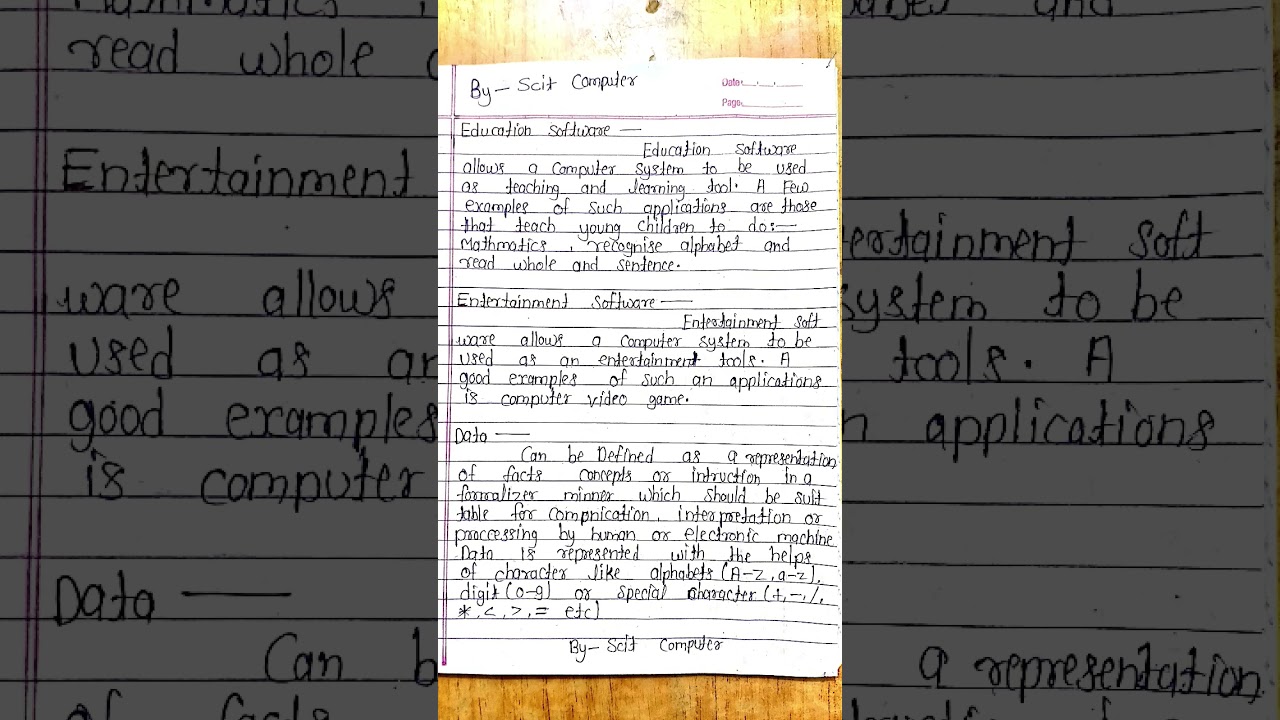 By- Scit Computer
Date:
Page:
Education software —
Education software
allows a computer system to be used
as teaching and learning tool. A Few
examples of such applications are those
that teach young children to do:—
Mathmatics, recagnise alphabet and
read whole and sentence.
Entertainment software —
Entertainment soft
ware allows a computer system to be
used as an entertainment tools. A
good examples of such an applications
is computer video game.
Data —
Can be Defined as a representation
of facts concepts or intruction in a
formalizer minner which should be suit
table for compnication, interpretation or
proccessing by human or electronic machine
Data is represented with the helps
of character like alphabets (A-Z, a-z),
digit (0-9) or special character (+, -, /,
*, <, >, = etc)
By- Scit Computer